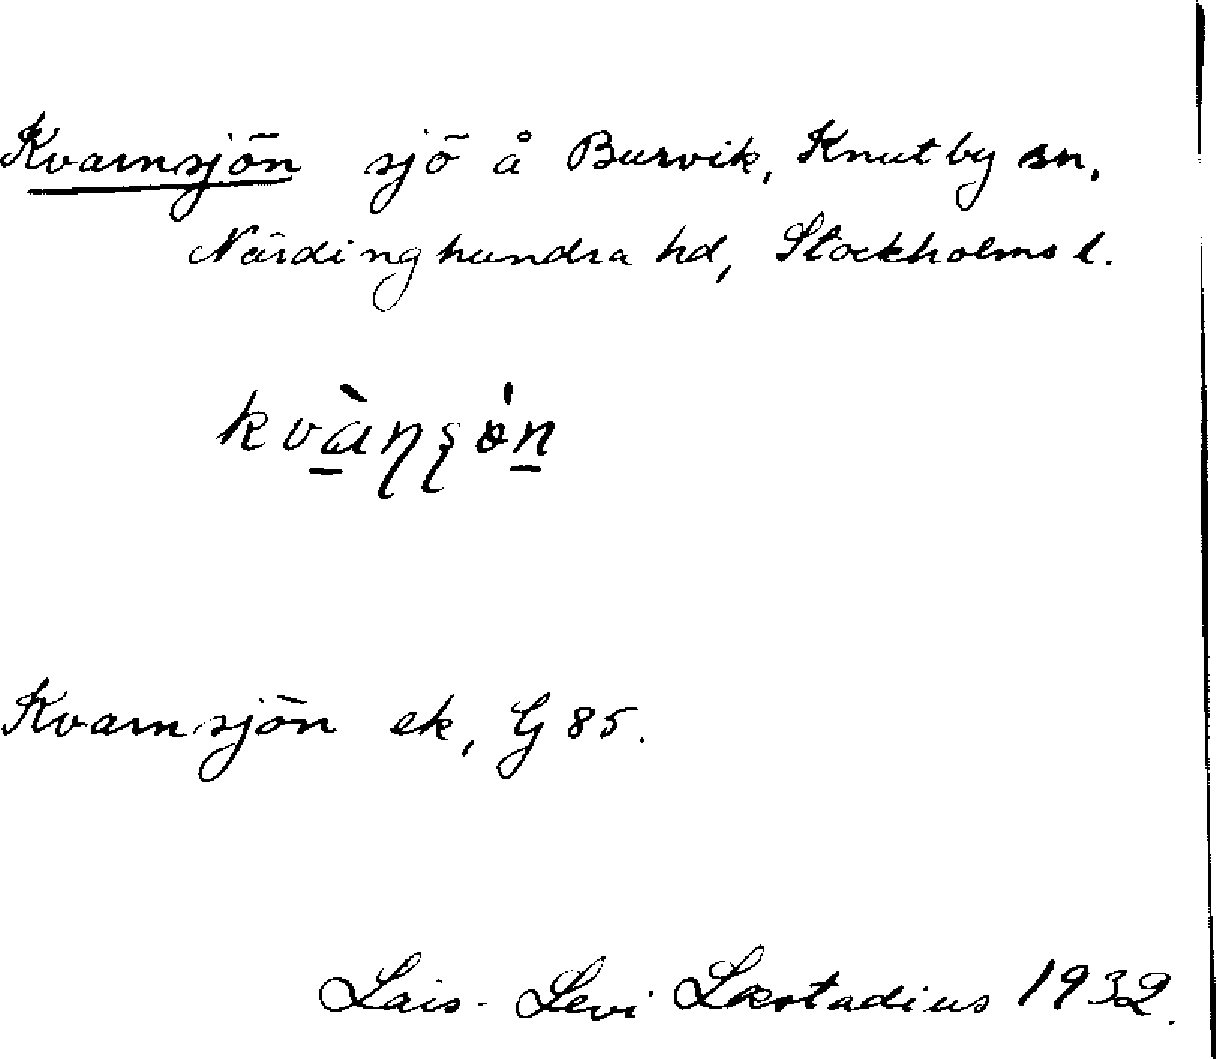 Kvarnsjön sjö å Burvik, Knutby sn,
Närdinghundra hd, Stockholms l.
kvàɳʂön
Kvarnsjön ek, G 85.
Lars-Levi Læstadius 1932.